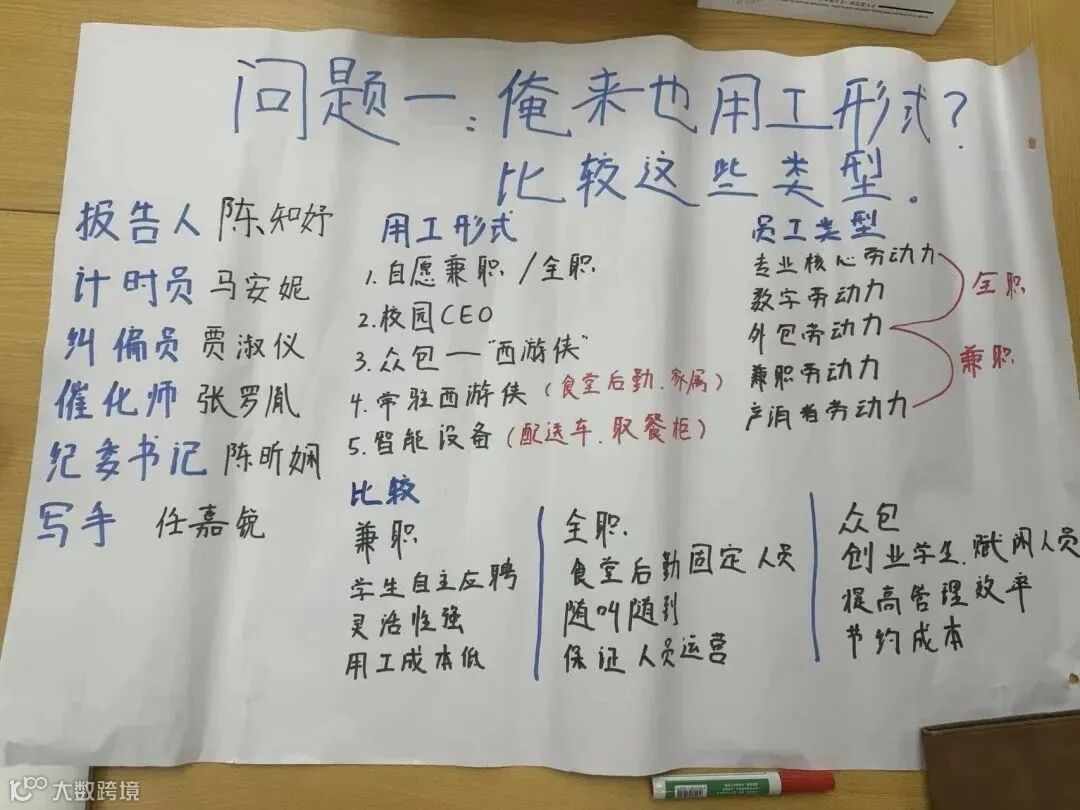 问题一：俺来也用工形式？
比较这些类型.
报告人 陈知妤
计时员 马安妮
纠偏员 贾淑仪
催化师 张罗胤
纪委书记 陈昕娴
写手 任嘉锐
用工形式
1.自愿兼职/全职
2.校园CEO
3.众包—“西游侠”
4.常驻西游侠(食堂后勤、家属)
5.智能设备(配送车、取餐柜)
员工类型
专业核心劳动力
数字劳动力
外包劳动力
兼职劳动力
产消者劳动力
全职
兼职
比较
兼职
学生自主应聘
灵活性强
用工成本低
全职
食堂后勤固定人员
随叫随到
保证人员运营
众包
创业学生、赋闲人员
提高管理效率
节约成本
大数跨境